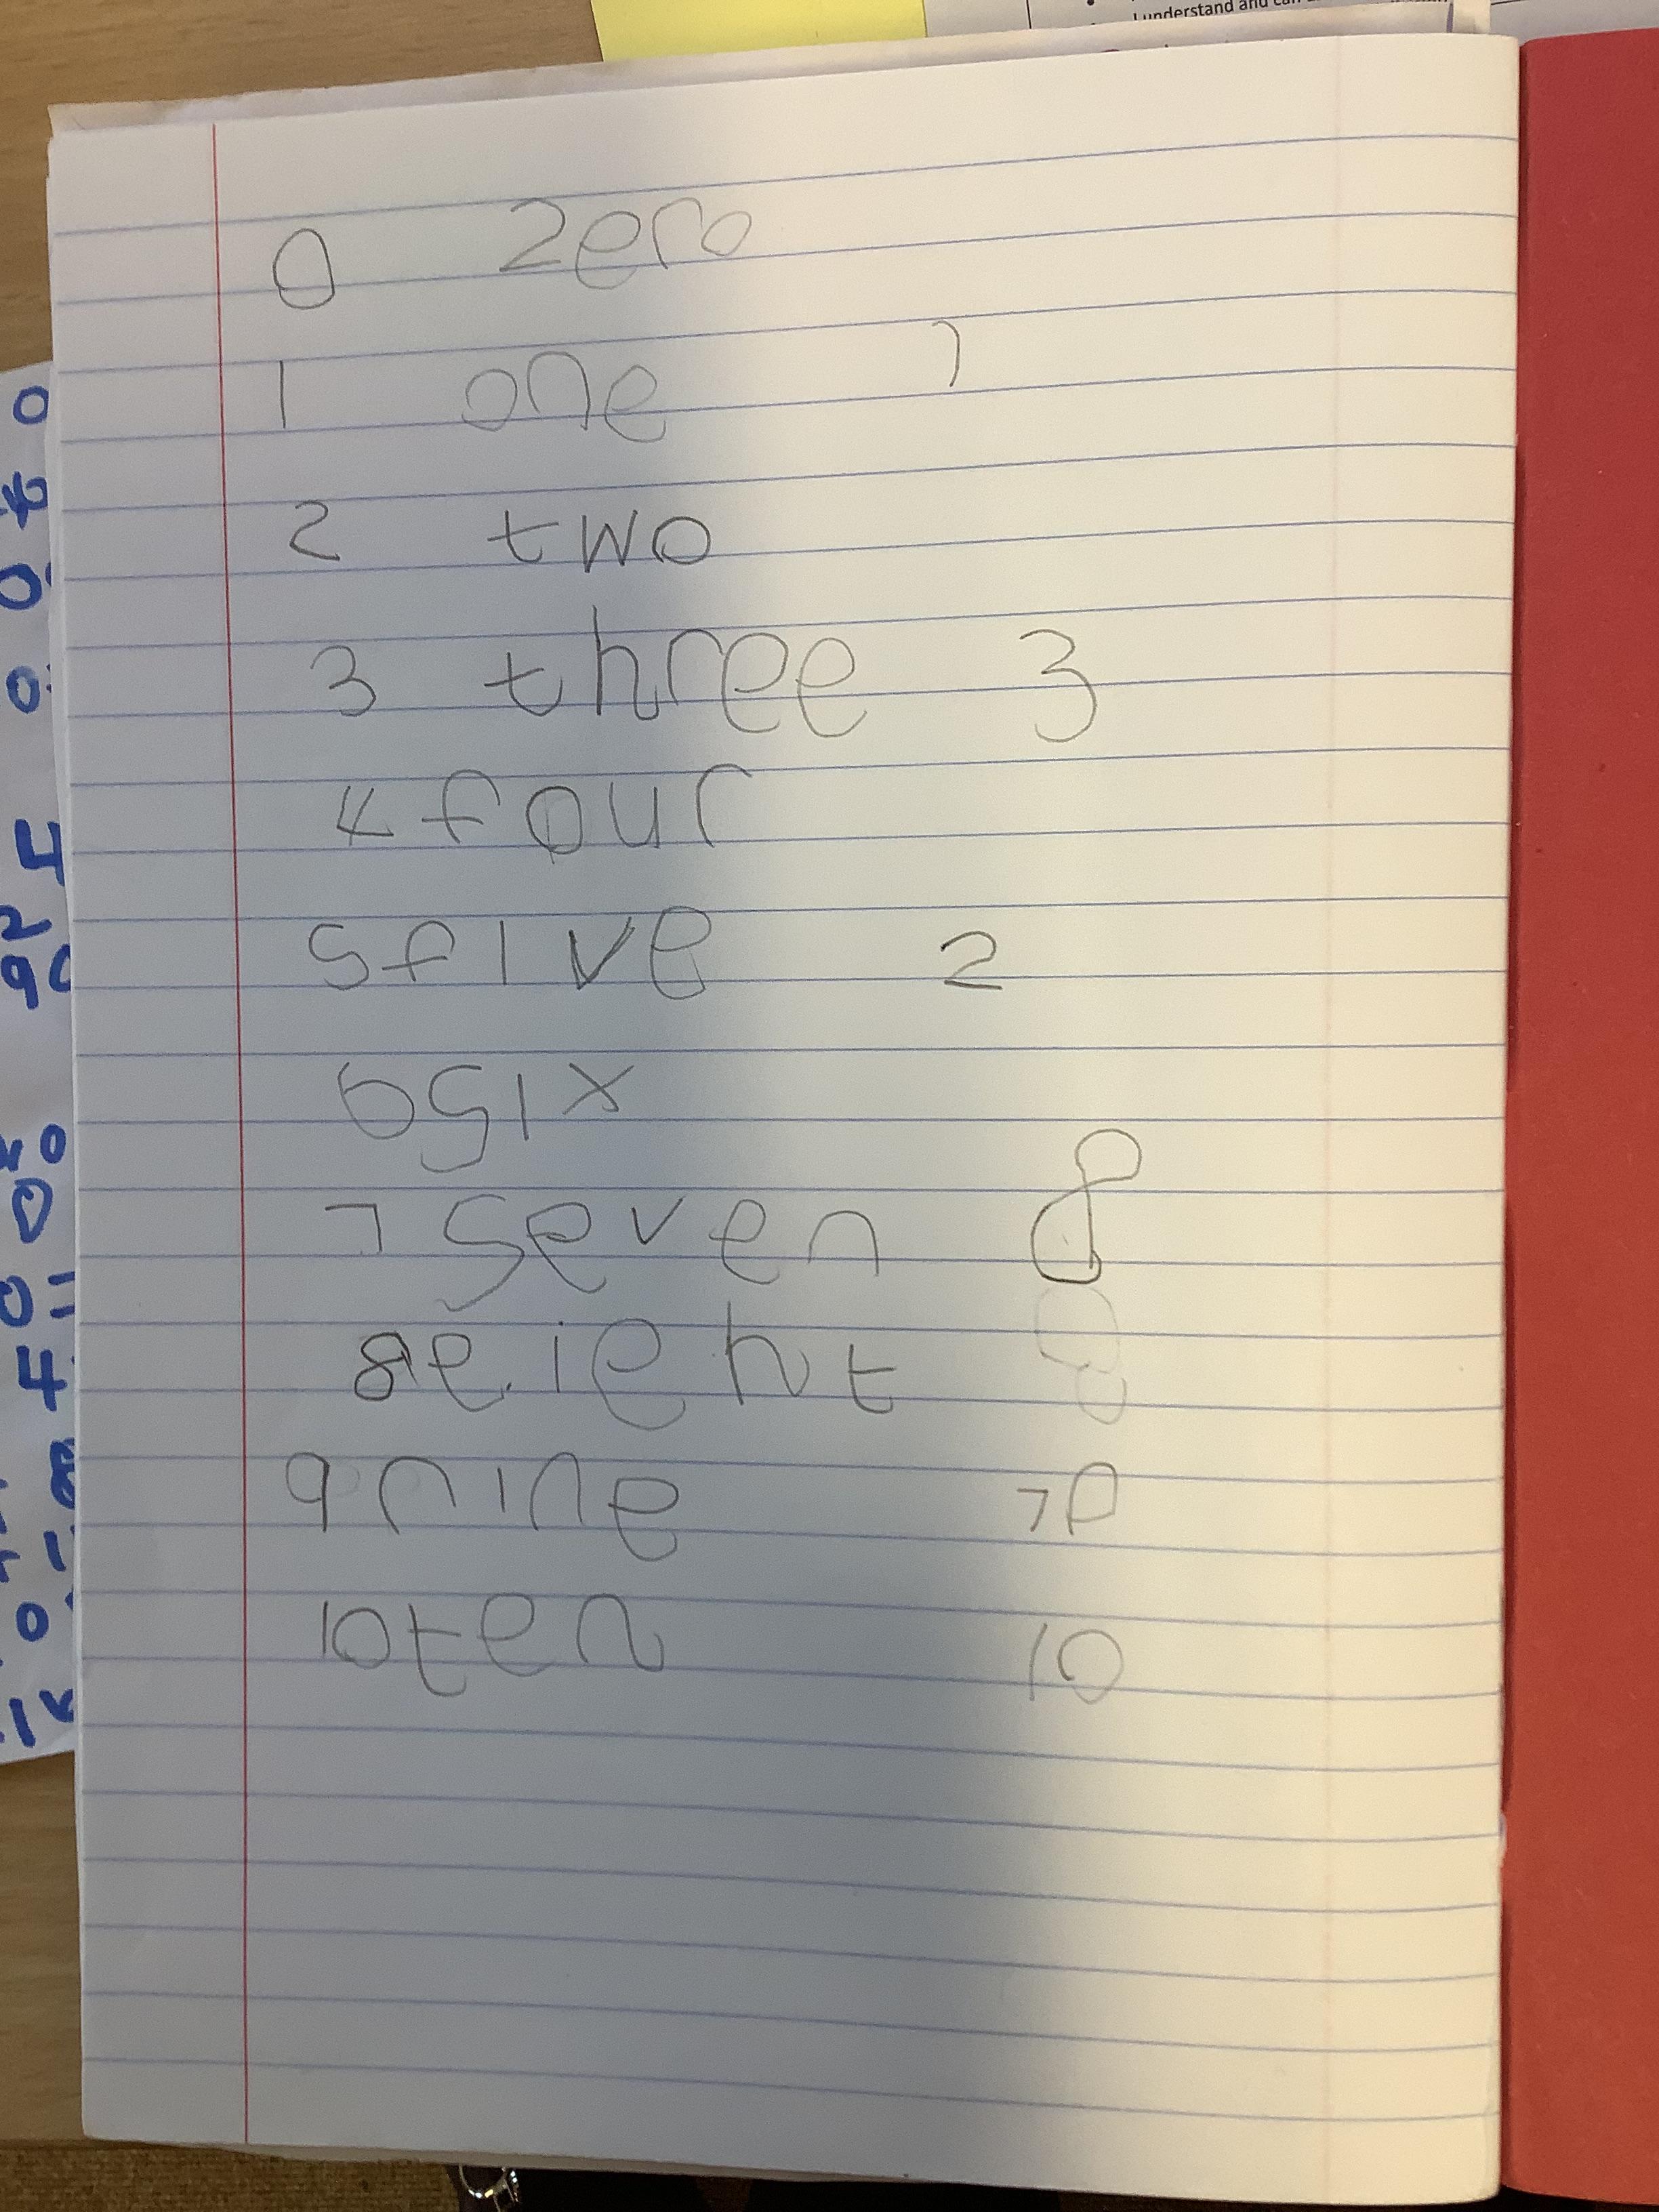 understand and can
0 zero
1 one 1
2 two
3 three 3
4 four
5 five 2
6 six
7 seven 8
8 eieht 8
9 nine 7
10 ten 10
0
0
0
4
2
90
0
0
0=
4
8
1
0